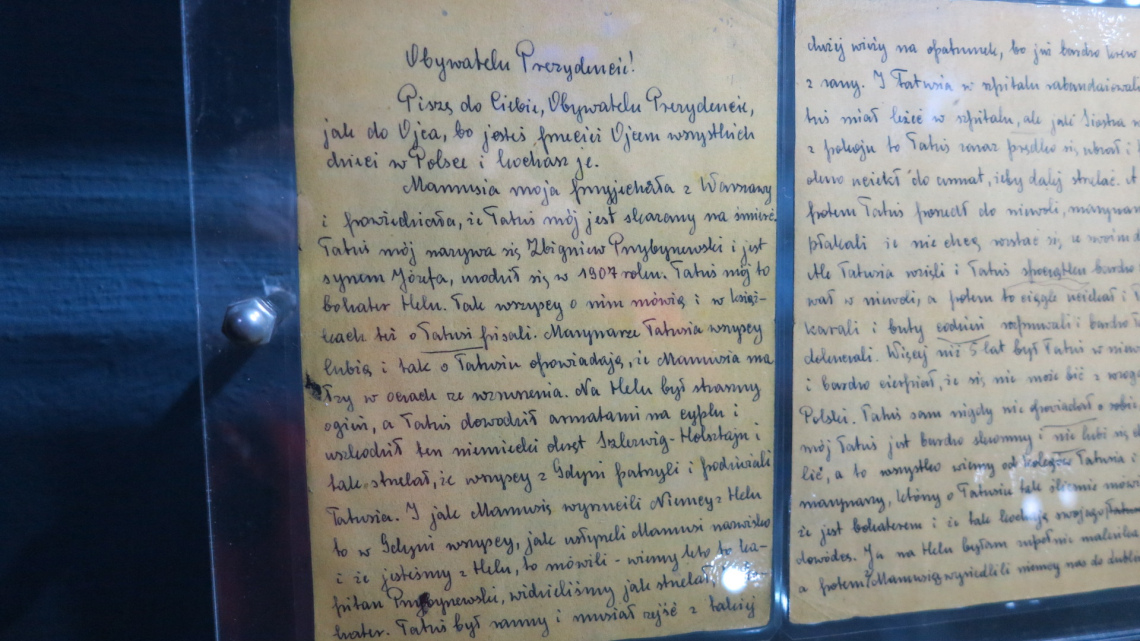 Obywatelu Prezydencie!
Piszę do Ciebie, Obywatelu Prezydencie,
jak do Ojca, bo jesteś przecież Ojcem wszystkich
dzieci w Polsce i kochasz je.
Mamusia moja przyjechała z Warszawy
i powiedziała, że Tatuś mój jest skazany na śmierć.
Tatuś mój nazywa się Zbigniew Przybyszewski i jest
synem Józefa, urodził się w 1907 roku. Tatuś mój to
bohater Helu. Tak wszyscy o nim mówią i w książ-
kach też o Tatusi pisali. Marynarze Tatusia wszyscy
lubią i tak o Tatusiu opowiadają, że Mamusia ma
łzy w oczach ze wzruszenia. Na Helu był straszny
ogień, a Tatuś dowodził armatami na cyplu i
uszkodził ten niemiecki okręt Szlezwig-Holsztajn i
tak strzelał, że wszyscy z Gdyni patrzyli i podziwiali
Tatusia. I jak Mamusię wyrzucili Niemcy z Helu
to w Gdyni wszyscy, jak usłyszeli Mamusi nazwisko
i że jesteśmy z Helu, to mówili - wiemy kto to ka-
pitan Przybyszewski, widzieliśmy jak strzelał,
hater. Tatuś był ranny i musiał zejść z takiej
dużej wieży na opatrunek, bo już bardzo krew
z rany. I Tatusia w szpitalu zabandażowali
tuś miał leżeć w szpitalu, ale jak siostra
z pokoju to Tatuś zaraz prędko się ubrał i
okno uciekł do armat, żeby dalej strzelać. A
potem Tatuś poszedł do niewoli, marynarze
płakali że nie chcą rozstać się ze swoim
Ale Tatusia wzięli i Tatuś początku bardzo
wał w niewoli, a potem to ciągle uciekał i
karali i buty codzień rozpruwali i bardzo
dokuczali. Więcej niż 5 lat był Tatuś w
i bardzo cierpiał, że się nie może bić z
Polski. Tatuś sam nigdy nie opowiadał o sobie
mój Tatuś jest bardzo skromny i nie lubi się
lić, a to wszystko wiemy od kolegów Tatusia i
marynarzy, którzy o Tatusiu tak ślicznie
że jest bohaterem i że tak kochają swojego
dowódcę. Ja na Helu byłam zupełnie maleńka
a potem Mamusię wysiedlili niemcy nas do